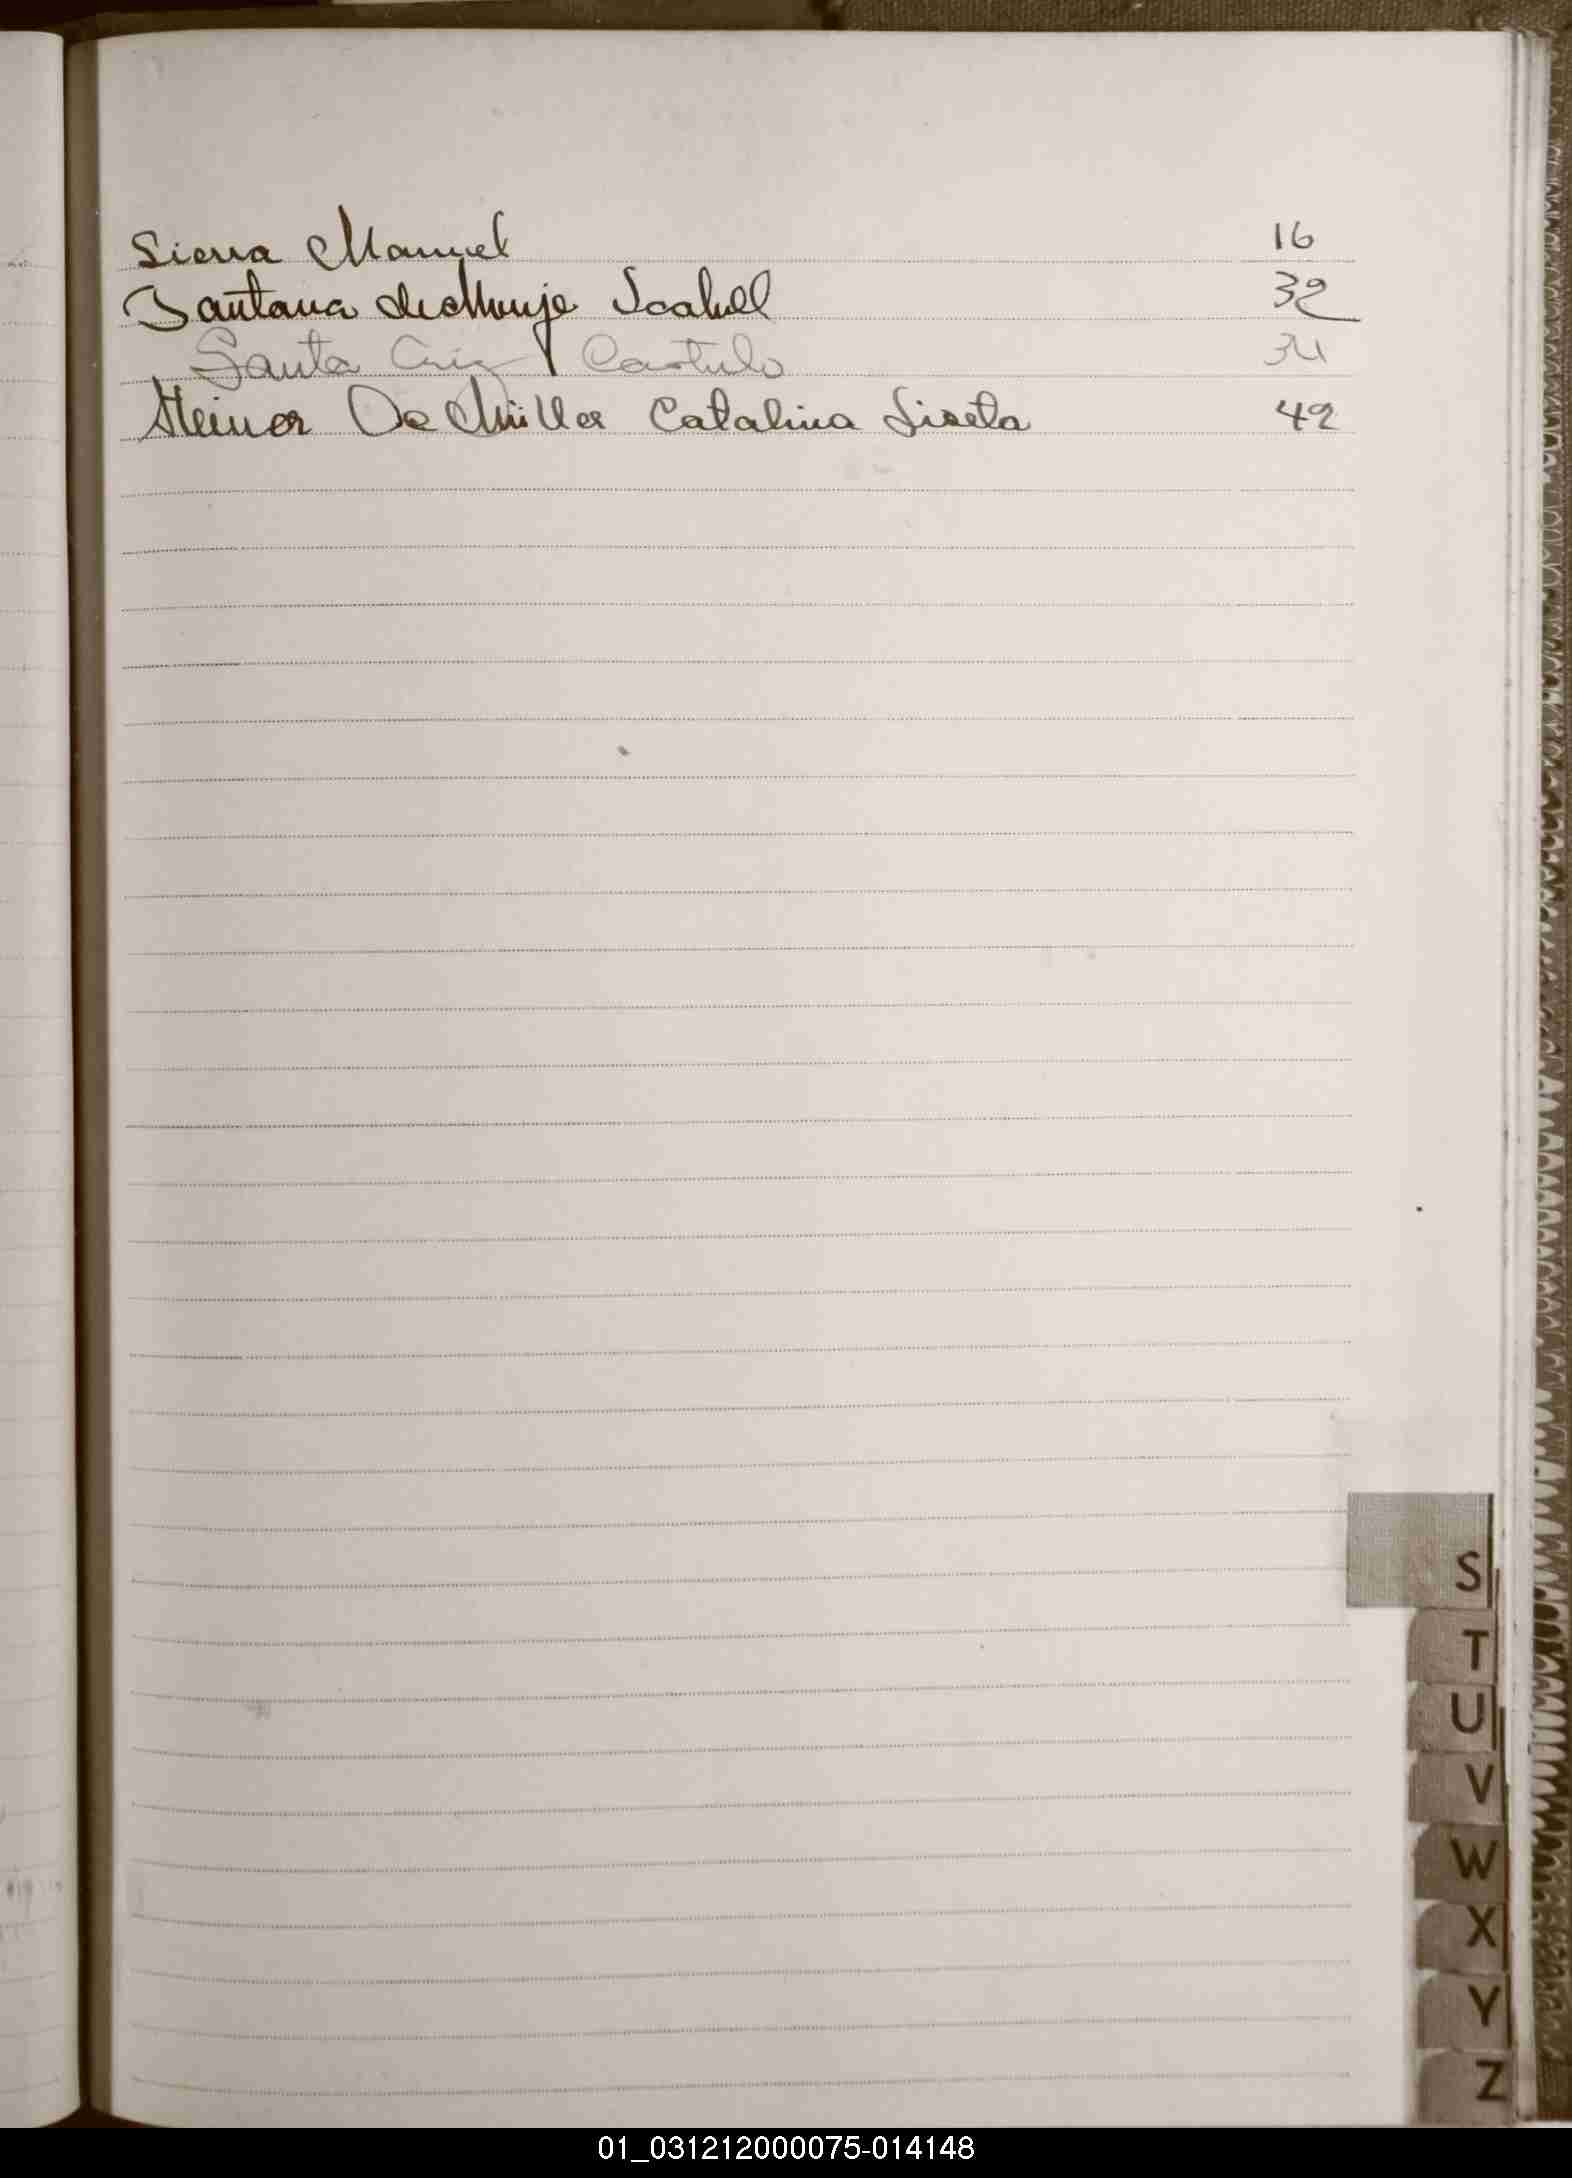 Sierra Manuel 16
Santana de Monje Isabel 32
Santa Cruz Castulo 34
Steiner De Müller Catalina Liseta 42
S
T
U
V
W
X
Y
Z
01_031212000075-014148